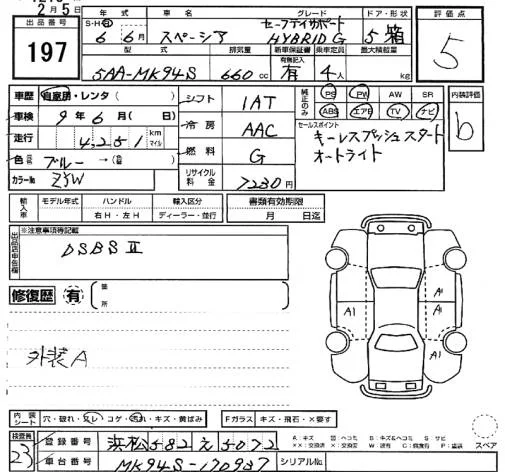 2月5日
出品番号
197
年式 車名 グレード ドア・形状
S・H・R 6年 6月 スペーシア セーフティサポート HYBRID G 5 箱
型式 排気量 新車保証書 乗車定員 最大積載量
有無記入
5AA-MK94S 660cc 有 4人 kg
評価点
5
車歴 自家用・レンタ( )
車検 9年6月( 日)
走行 4,251 km マイル
色 元色 ブルー→
カラーNo ZYW
シフト 1AT
冷房 AAC
燃料 G
リサイクル料金 7230円
純正のみ PS PW AW SR
ABS エアB TV ナビ
セールスポイント
キーレスプッシュスタート
オートライト
内装評価
b
輸入車 モデル年式 ハンドル 輸入区分
右H・左H ディーラー・並行
書類有効期限
月 日迄
出品店申告欄
※注意事項等記載
DSBSⅡ
修復歴 有 箇所
外装A
A1
A1
A1
内装シート 穴・破れ・スレ・コゲ・汚れ・キズ・黄ばみ
Fガラス キズ・飛石・×要す
検査員
23
登録番号 浜松582え5072
車台番号 MK94S-170937 シリアルNo.
スペア